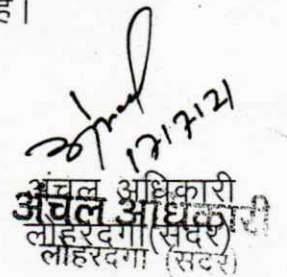 है।
17/7/21
अंचल अधिकारी
अंचल अधिकारी
लोहरदगा (सदर)
लोहरदगा (सदर)